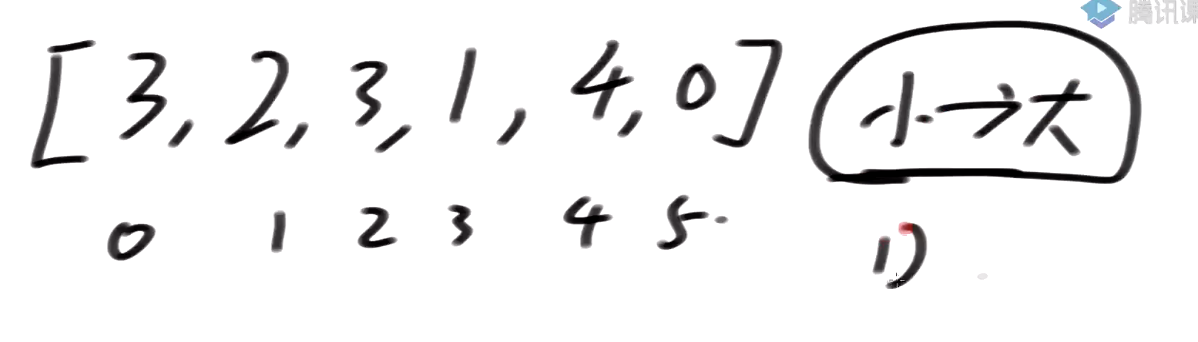 腾讯课
[3, 2, 3, 1, 4, 0] 小→大
0 1 2 3 4 5. 1)